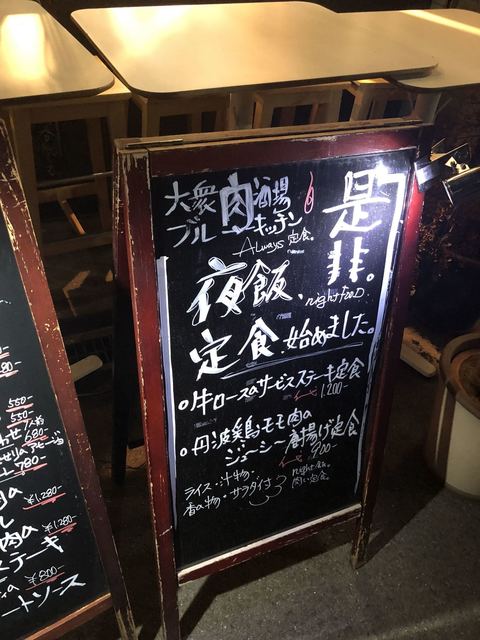 大衆肉酒場
ブルーキッチン
Always 定食。
是非。
夜飯、
night food.
定食、始めました。
牛ロースのサービスステーキ定食
1,200-
丹波鶏モモ肉の
ジューシー唐揚げ定食
900-
ライス・汁物・
香の物・サラダ付き
550-
550-
680-
780-
¥1,280-
肉の
¥1,280-
ステーキ
¥800-
ートソース